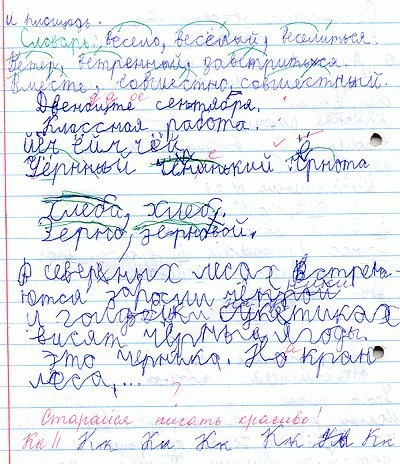 и площадь.
Словарь, весело, весёлый, веселиться.
Ветер, ветренный,
Вместе, совместно, совместный.
Двенойте сентября.
Классная работа.
йёч ёйч чёй
Чёрнный ченинький чёрнота
хлеба, хлеб,
Зерно, зерновой.
В северных лесах встреча-
ются заросли черной
и голубики
висят чёрные ягоды.
это черника. На краю
леса,...
?
Старайся писать красиво!
Кк || Кк Кк Кк Кк Кк Кк